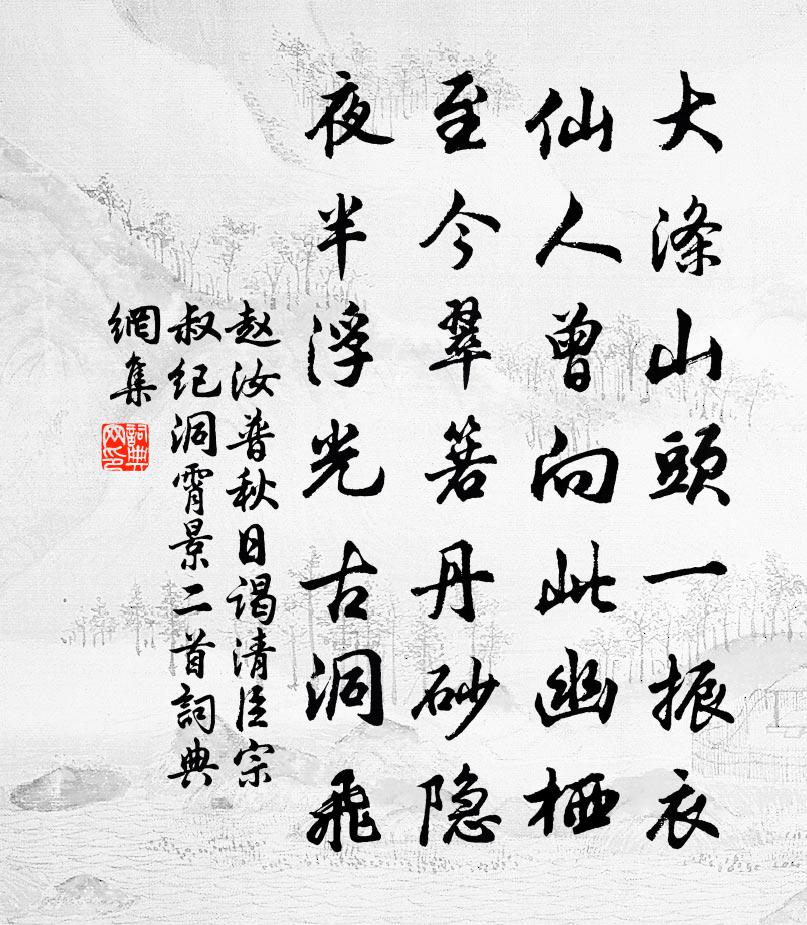 大涤山頭一振衣
仙人曾向此幽栖
至今翠箬丹砂隐
夜半浮光古洞飛
赵汝普秋日谒清臣宗
叔纪洞霄景二首詞典
網集
詞典
网印